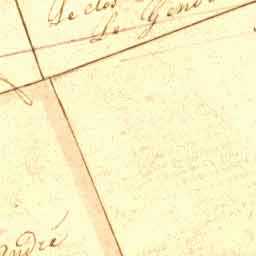 Le clos
Le Gen
André